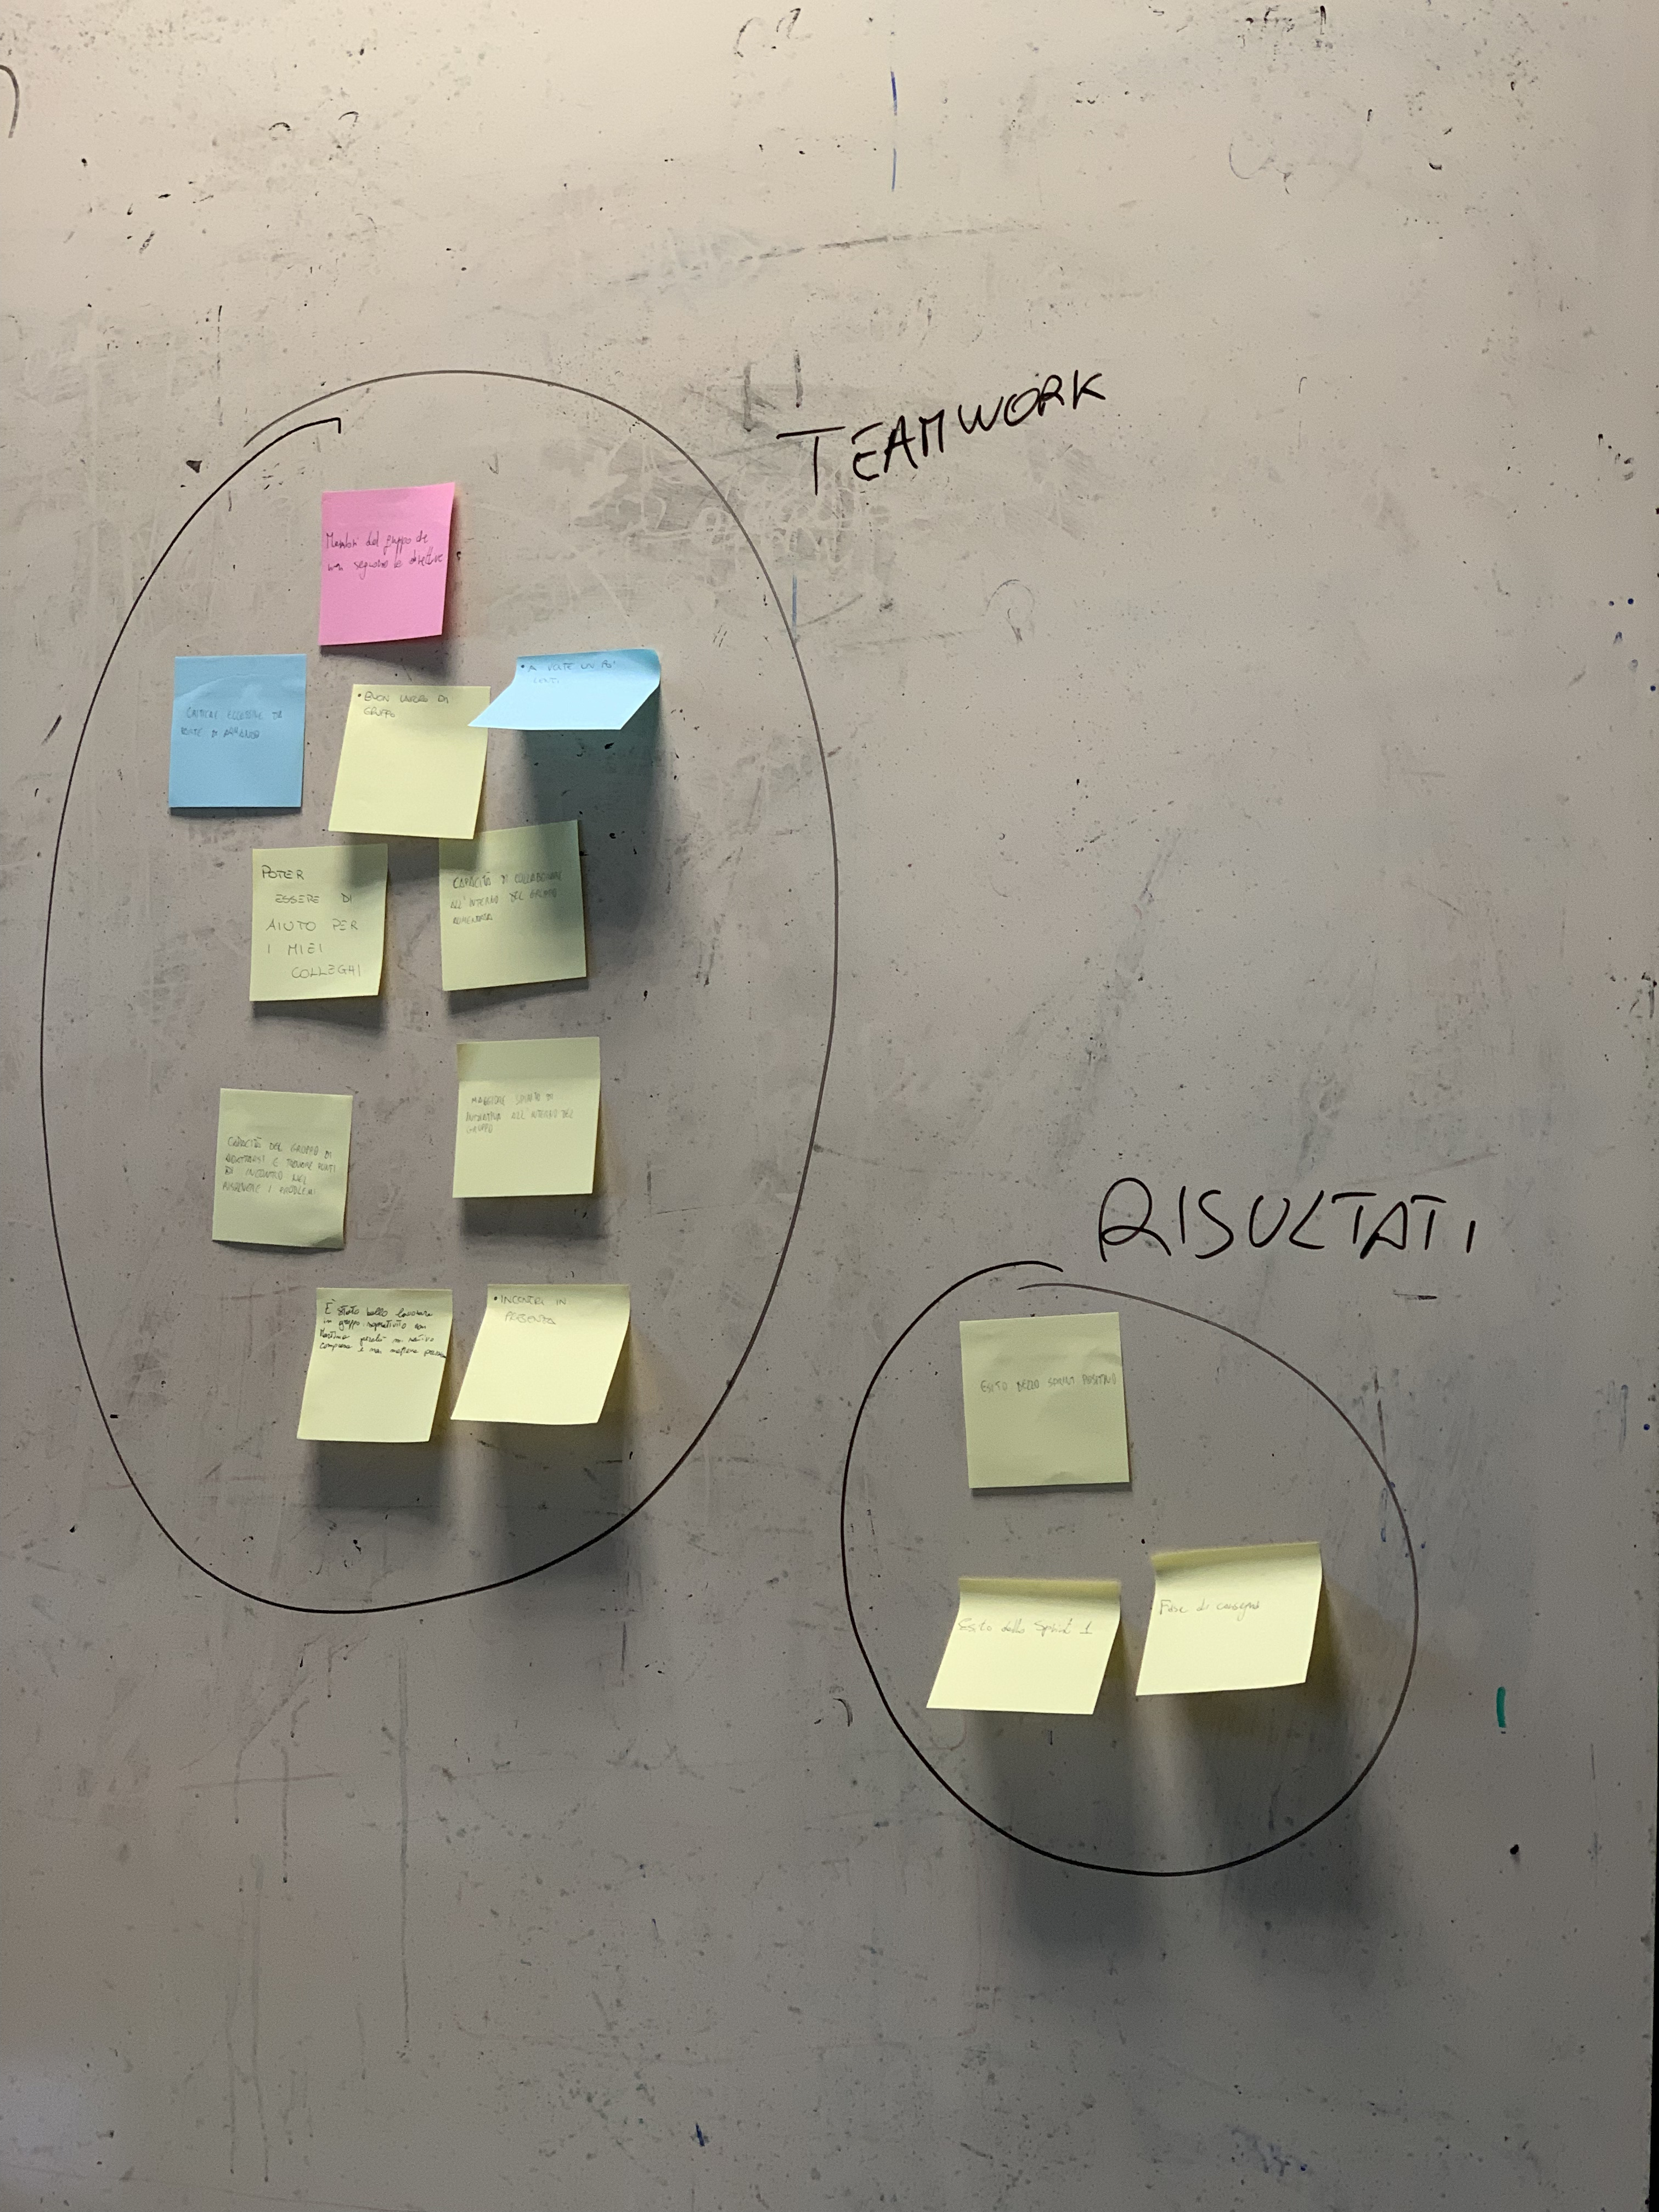 TEAMWORK
Membri del gruppo che
non seguono le direttive
• A VOLTE UN PO'
LENTI
CRITICHE ECCESSIVE DA
PARTE DI
• BUON LAVORO DI
GRUPPO
POTER
ESSERE DI
AIUTO PER
I MIEI
COLLEGHI
CAPACITÀ DI COLLABORARE
ALL'INTERNO DEL GRUPPO
AUMENTATA
CAPACITÀ DEL GRUPPO DI
ADATTARSI E TROVARE PUNTI
DI INCONTRO NEL
RISOLVERE I PROBLEMI
MAGGIORE SPIRITO DI
INIZIATIVA ALL'INTERNO DEL
GRUPPO
È stato bello lavorare
in gruppo soprattutto con
perché mi
comprare e
• INCONTRI IN
PRESENZA
RISULTATI
ESITO DELLO SPRINT POSITIVO
Esito dello Sprint 1
Fase di consegna